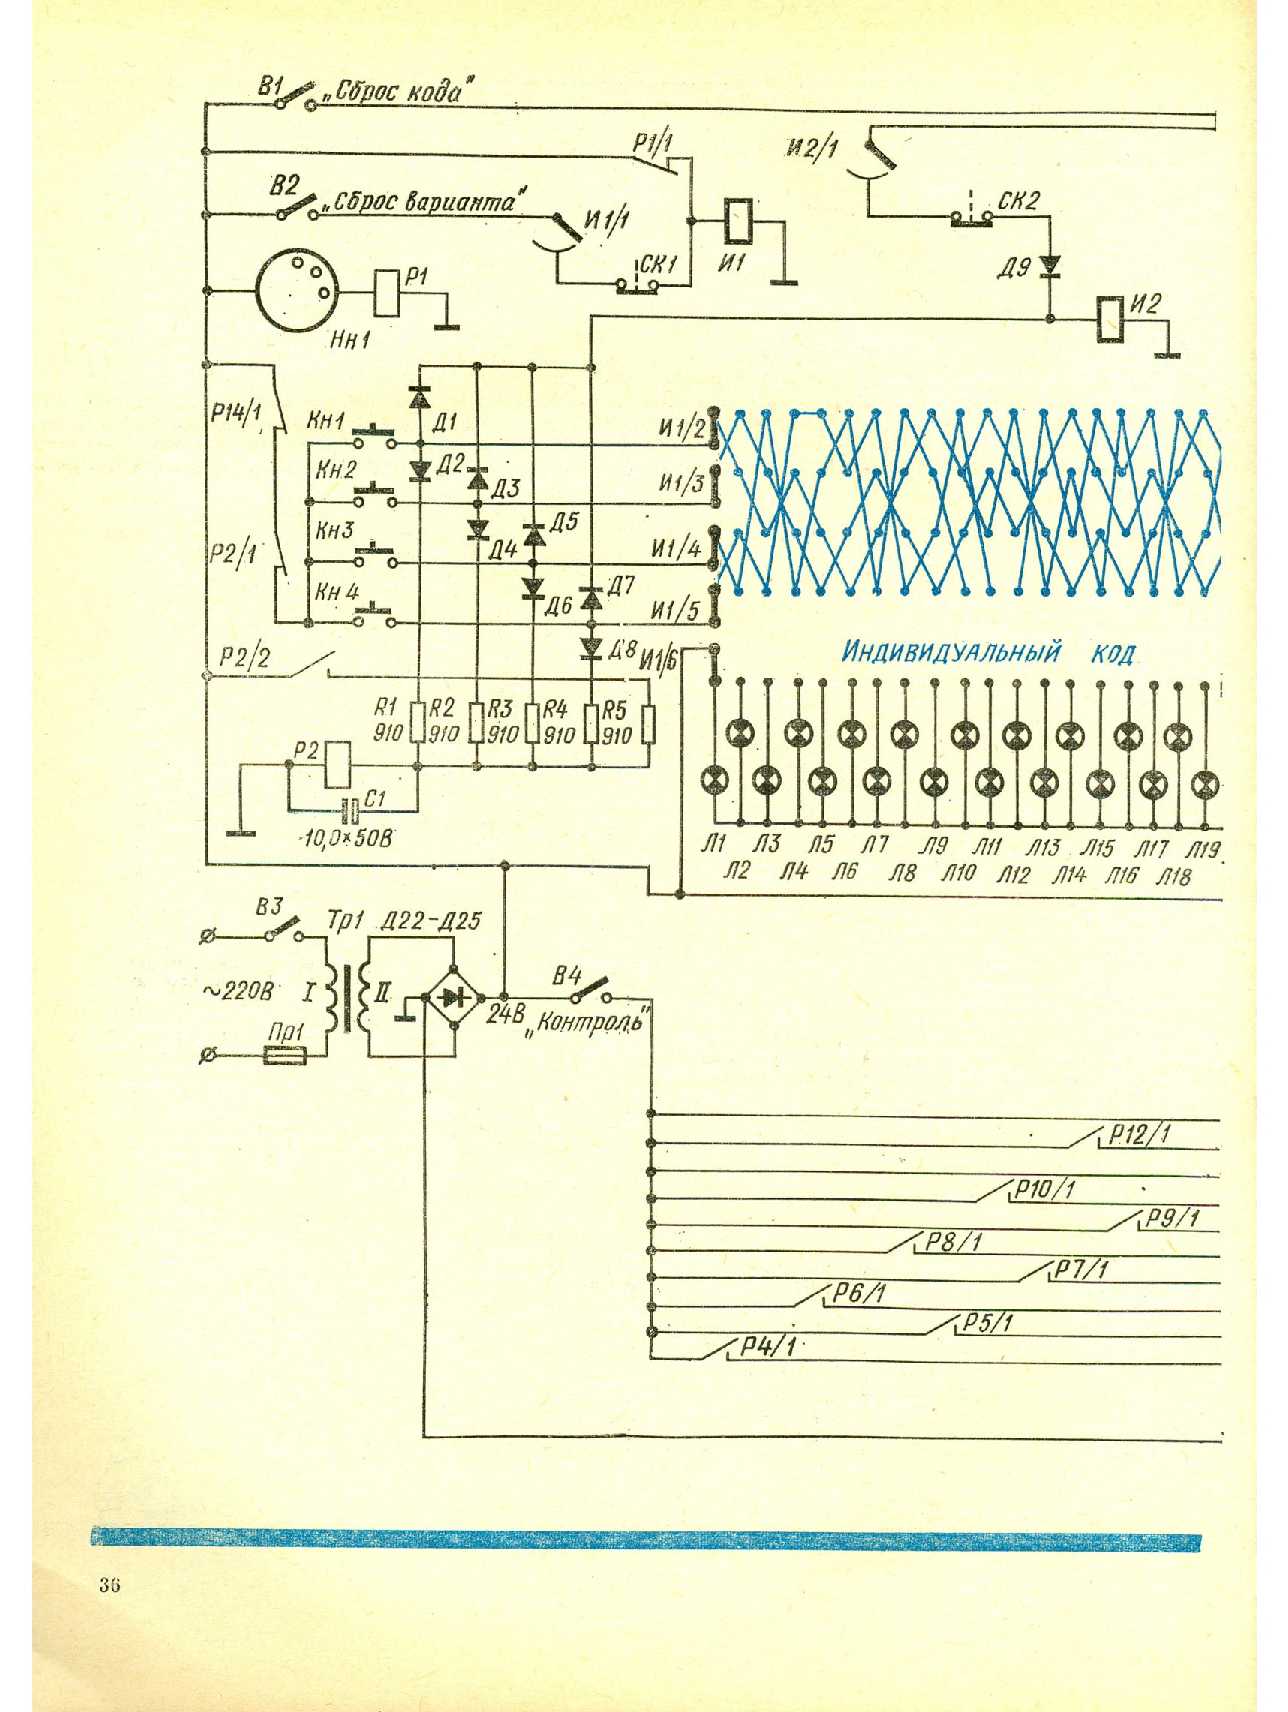 В1 „Сброс кода"
Р1/1
И2/1
В2 „Сброс варианта"
И1/1
СК2
СК1
И1
Д9
Р1
И2
Нн1
Р14/1
Кн1
Д1
И1/2
Кн2
Д2
Д3
И1/3
Кн3
Д5
Р2/1
Д4
И1/4
Кн4
Д6
Д7
И1/5
Р2/2
Д8
И1/6
Индивидуальный код
R1 R2 R3 R4 R5
910 910 910 910 910
Р2
С1
10,0×50В
Л1 Л3 Л5 Л7 Л9 Л11 Л13 Л15 Л17 Л19
Л2 Л4 Л6 Л8 Л10 Л12 Л14 Л16 Л18
В3
Тр1 Д22-Д25
В4
~220В
I II
24В „Контроль"
Пр1
Р12/1
Р10/1
Р9/1
Р8/1
Р7/1
Р6/1
Р5/1
Р4/1
36